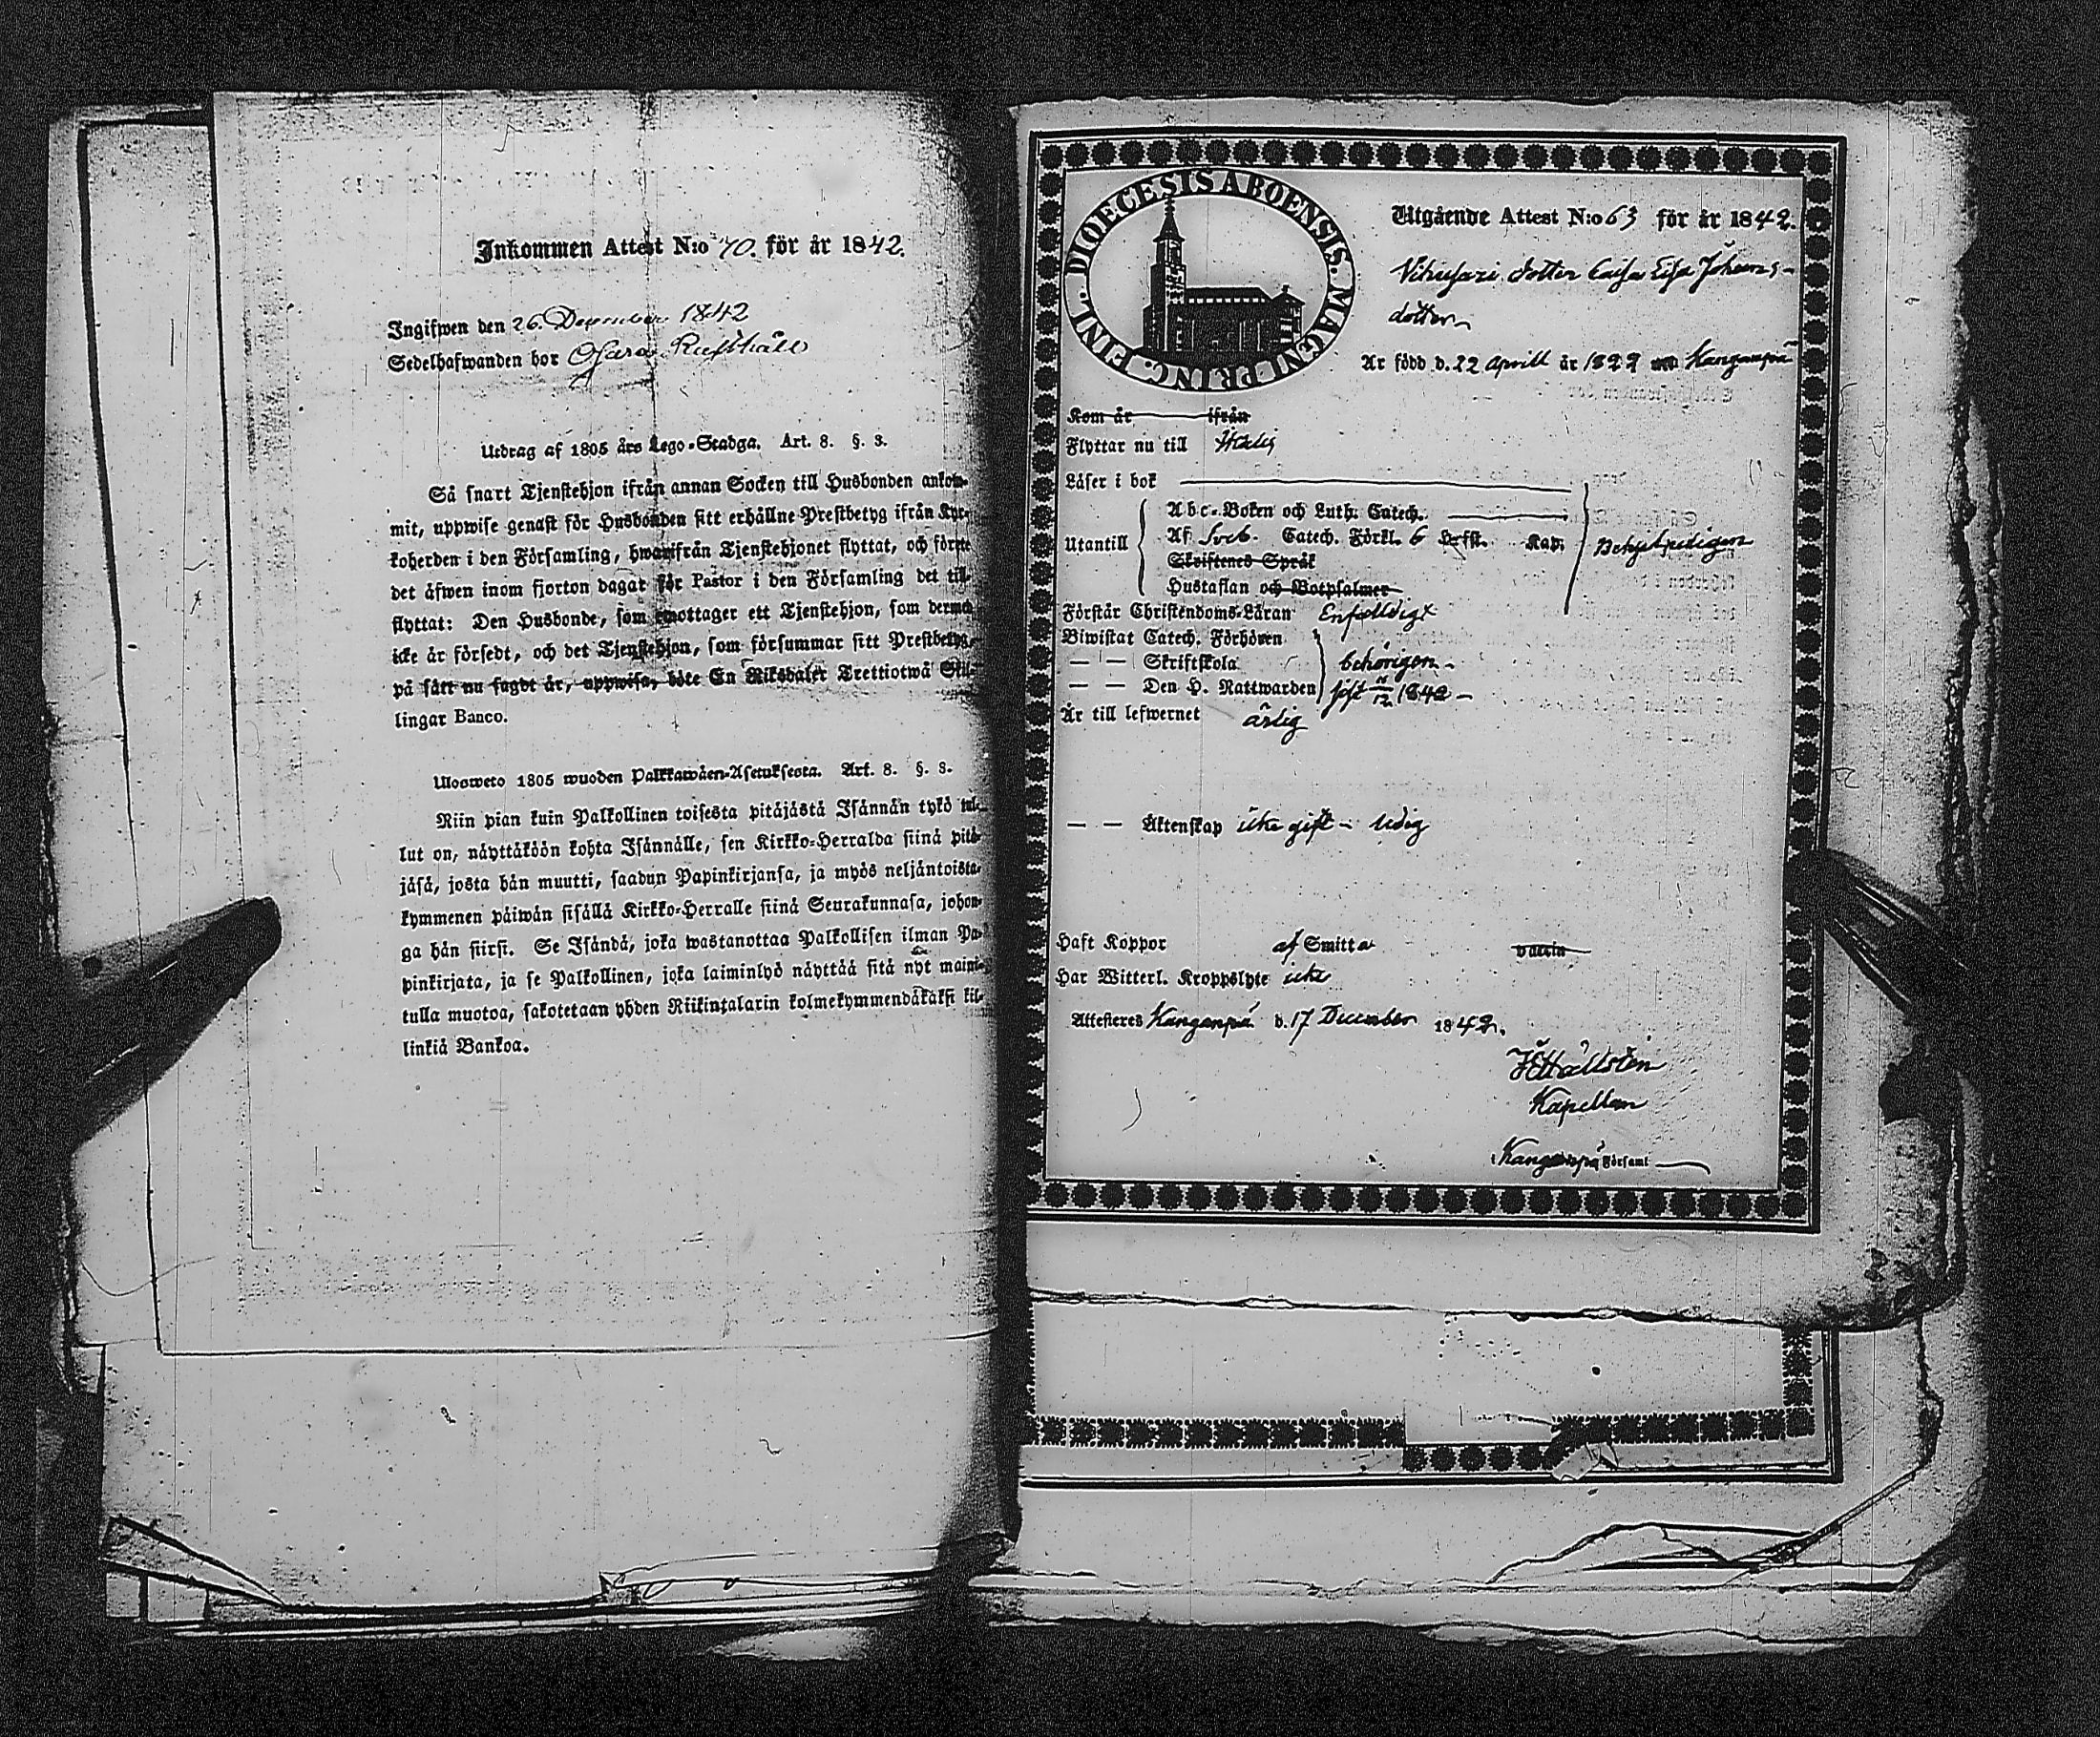 Inkommen Attest N:o 70. för år 1842.
Ingifwen den 26. December 1842
Sedelhafwanden bor
Utdrag af 1805 års Lego-Stadga. Art. 8. §. 3.
Så snart Tjenstehjon ifrån annan Socken till Husbonden ankom-
mit, uppwise genast för Husbonden sitt erhållne Prestbetyg ifrån Kyr-
koherden i den Församling, hwarifrån Tjenstehjonet flyttat, och förete
det äfwen inom fjorton dagar för Pastor i den Församling det till-
flyttat: Den Husbonde, som emottager ett Tjenstehjon, som dermed
icke är försedt, och det Tjenstehjon, som försummar sitt Prestbetyg,
på sätt nu sagdt är, uppwisa, böte En Riksdaler Trettiotwå Skil-
lingar Banco.
Ulosweto 1805 wuoden Palkkawäen-Asetuksesta. Art. 8. §. 3.
Niin pian kuin Palkollinen toisesta pitäjästä Isännän tykö tul-
lut on, näyttäköön kohta Isännälle, sen Kirkko-Herralda siinä pitä-
jäsä, josta hän muutti, saadun Papinkirjansa, ja myös neljäntoista-
kymmenen päiwän sisällä Kirkko-Herralle siinä Seurakunnasa, johon-
ga hän siirsi. Se Isändä, joka wastanottaa Palkollisen ilman Pa-
pinkirjata, ja se Palkollinen, joka laiminlyö näyttää sitä nyt maini-
tulla muotoa, sakotetaan yhden Riikintalarin kolmekymmendäkaksi kil-
linkiä Bankoa.
DIOECESIS ABOENSIS. MAGNI PRINC. FINL.
Utgående Attest N:o 63 för år 1842.
dotter Caisa Lisa Johans-
dotter
Är född d. 22 April år 1822 Kanganpä
Kom år ifrån
Flyttar nu till
Läser i bok
Utantill
Abc-Boken och Luth. Catech.
Af Sveb. Catech. Förkl. 6 Hufst. Kap.
Skriftenes Språk
Hustaflan och Botpsalmer
Förstår Christendoms-Läran Enfalldigt
Biwistat Catech. Förhören
— — Skriftskola behörigen
— — Den H. Nattwarden 1842
Är till lefwernet ärlig
— — Äktenskap icke gift - ledig
Haft Koppor af Smitta vaccin
Har Witterl. Kroppslyte icke
Attesteras Kanganpä d. 17 December 1842.
Hällstén
Kapellan
i Kanganpä Församl